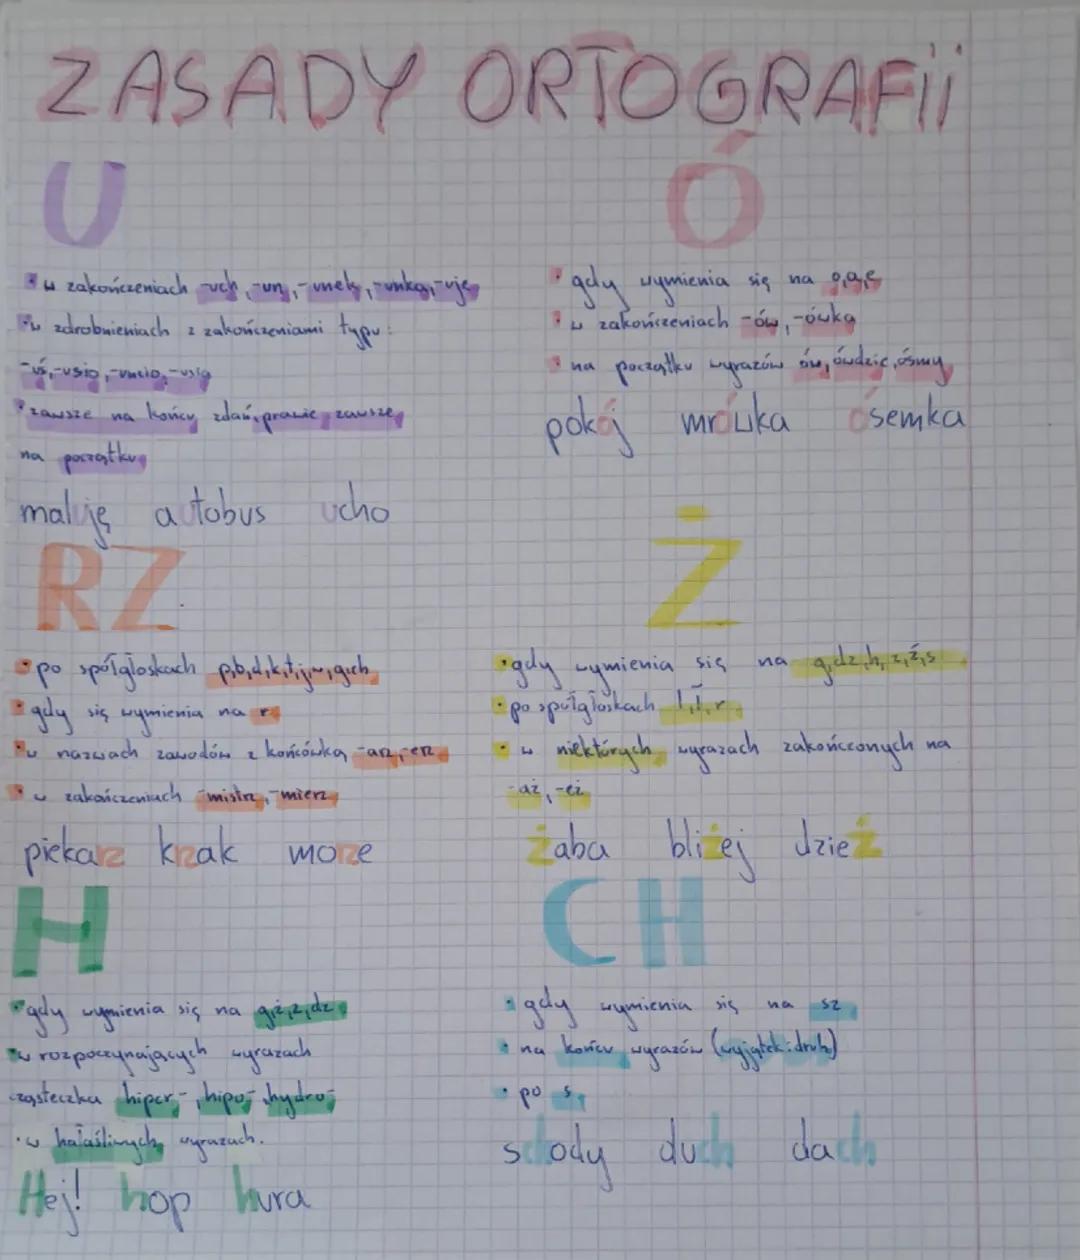 ZASADY ORTOGRAFII
U
• w zakończeniach -uch, -un, -unek, -unka, -uje
• w zdrobnieniach z zakończeniami typu:
-uś, -usio, -uncio, -usia
• zawsze na końcu zdań, prawie zawsze
na początku
maluję autobus ucho
Ó
• gdy wymienia się na o,a,e
• w zakończeniach -ów, -ówka
• na początku wyrazów ów, ówdzie, ósmy
pokój mrówka ósemka
RZ
• po spółgłoskach p,b,d,k,t,j,w,g,ch
• gdy się wymienia na r
• w nazwach zawodów z końcówką -arz, -erz
• w zakończeniach -mistrz, -mierz
piekarz krzak morze
Ż
• gdy wymienia się na g,dz,h,z,ź,s
• po spółgłoskach l,ł,r
• w niektórych wyrazach zakończonych na
-aż, -eż
żaba bliżej dzież
H
• gdy wymienia się na g,ż,z,dz
• w rozpoczynających wyrazach
cząsteczka hiper-, hipo-, hydro-
• w hałaśliwych wyrazach.
Hej! hop hura
CH
• gdy wymienia się na sz
• na końcu wyrazów (wyjątek: druh)
• po s
schody duch dach